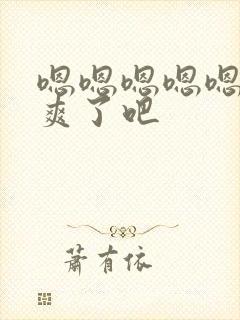 嗯嗯嗯嗯嗯
爽了吧
萧有依